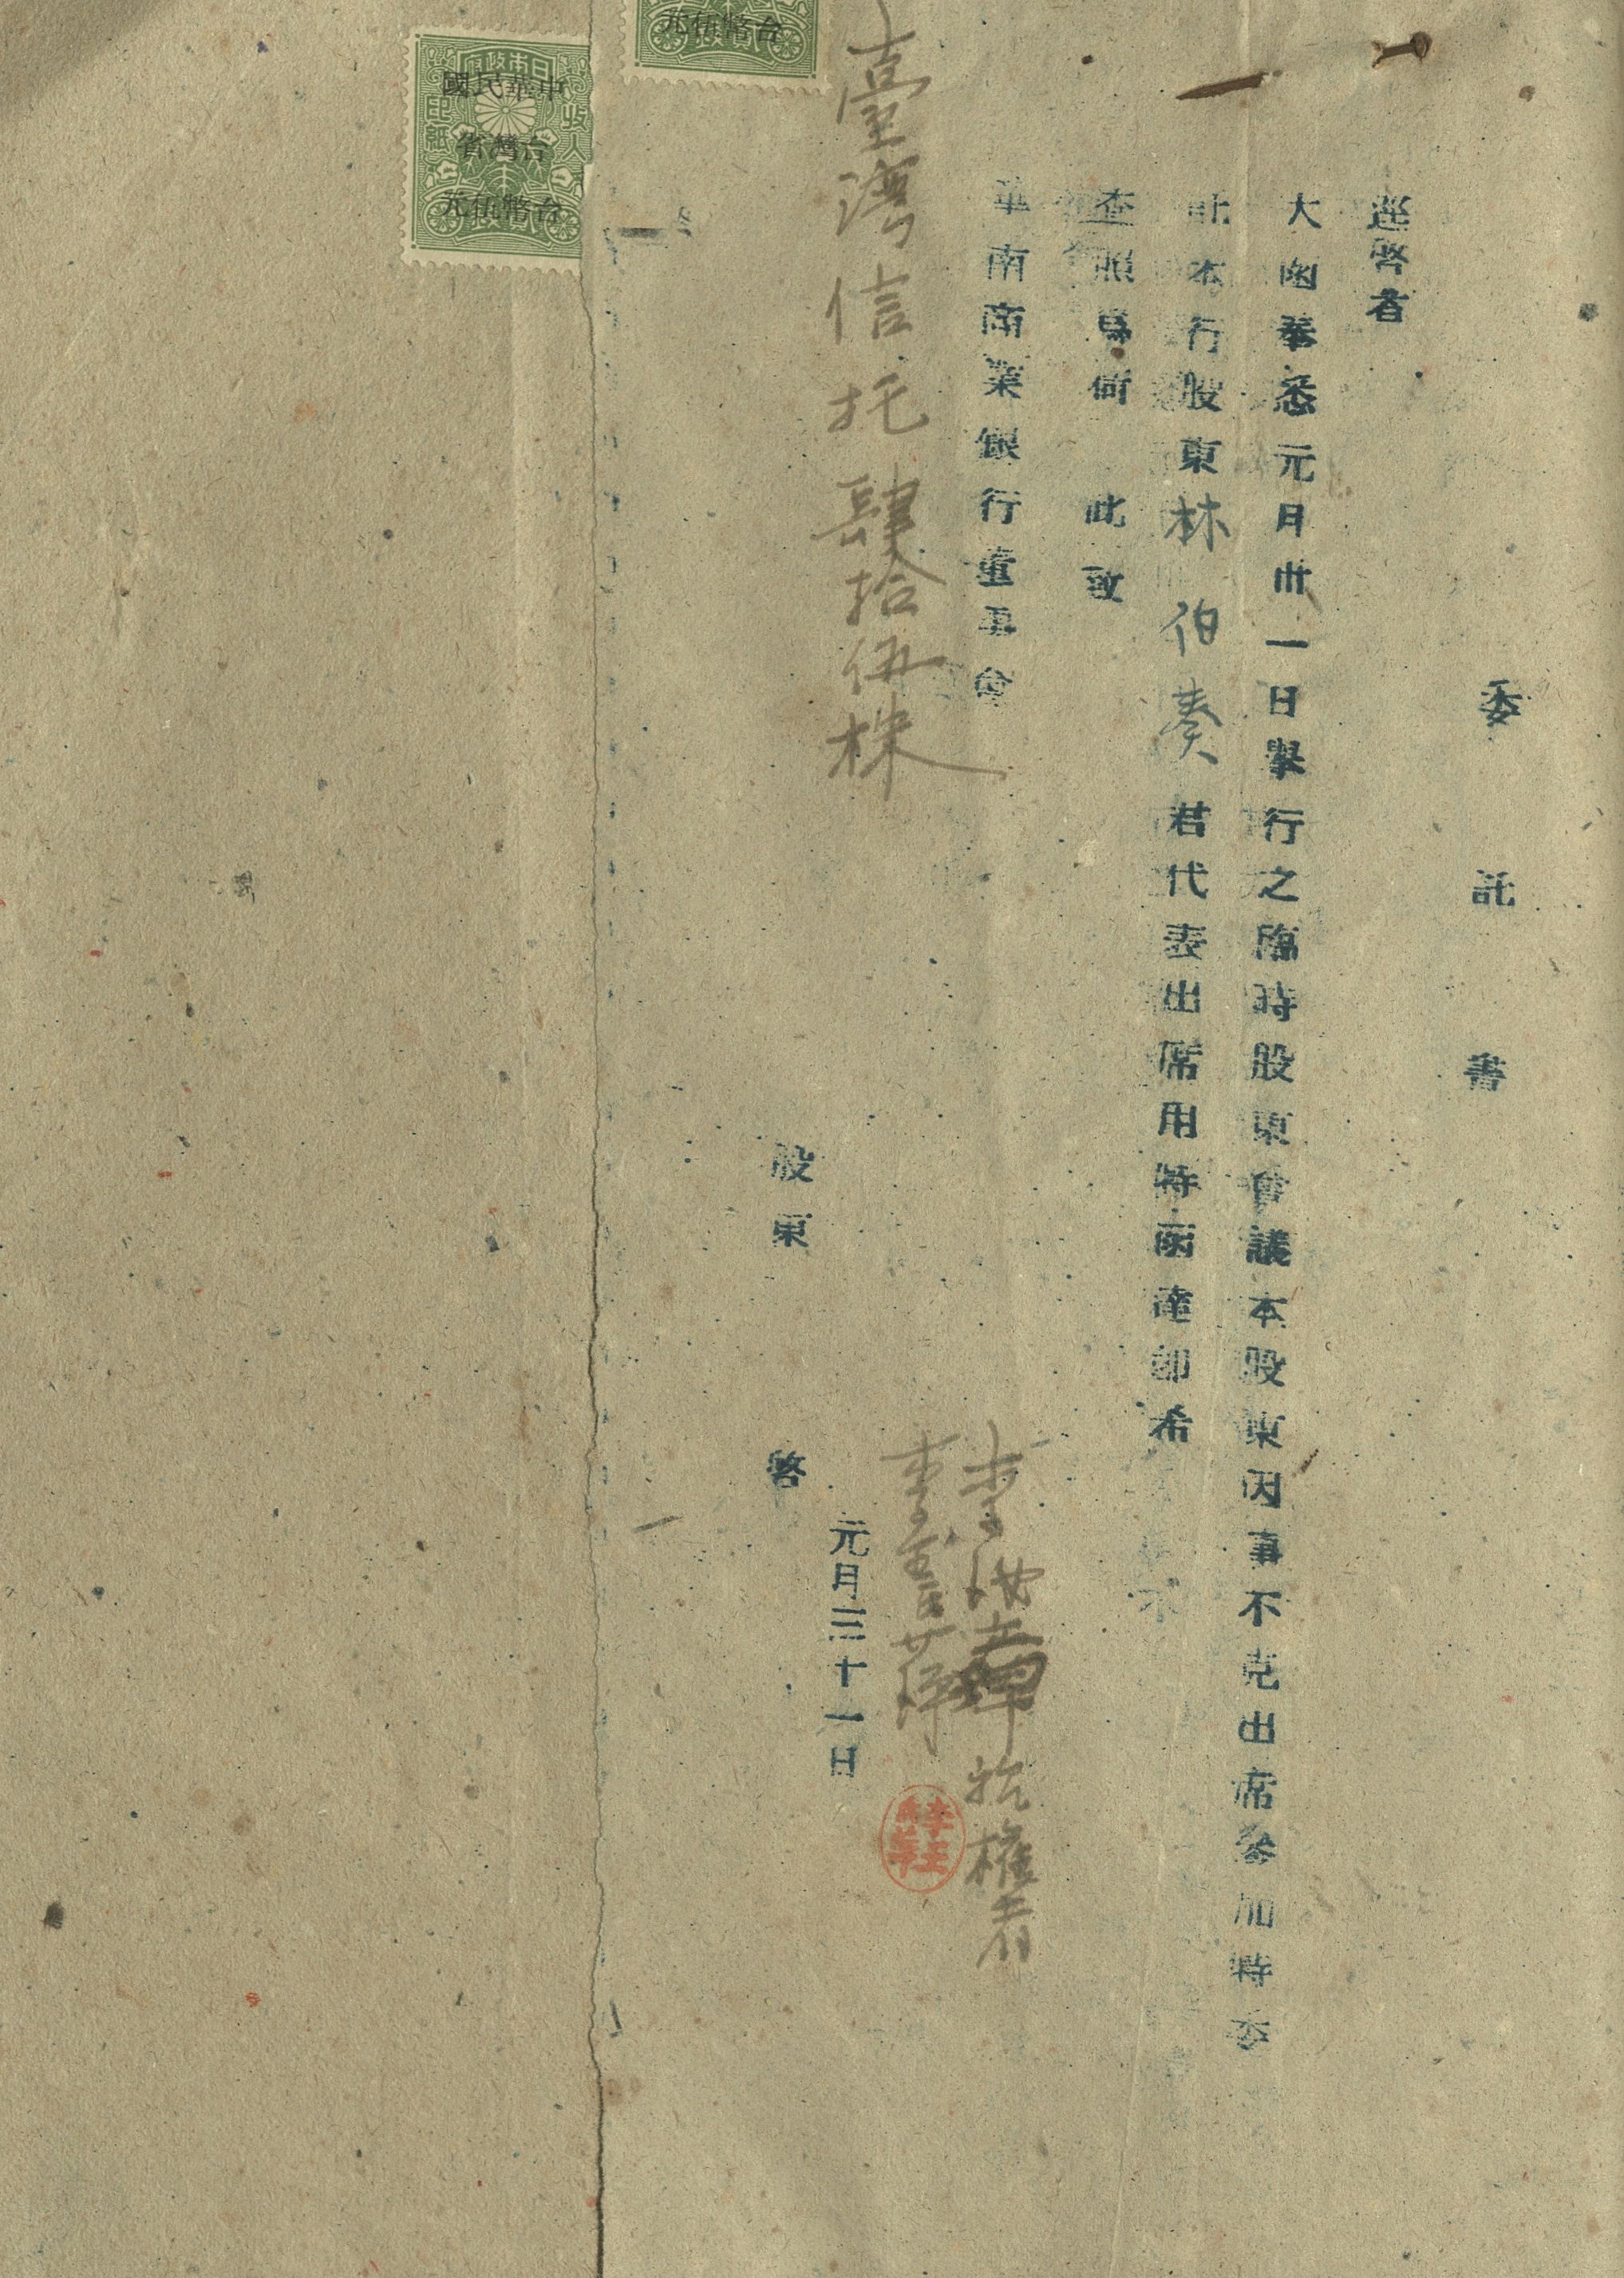 委託書
逕啓者
大函奉悉元月卅一日舉行之臨時股東會議本股東因事不克出席參加特委
託本行股東林伯奏君代表出席用特函達卽希
查照爲荷　此致
華南商業銀行董事會
執權者
臺灣信托肆拾伍株
元月三十一日
股東　啓
台幣伍元
中華民國
台灣省
台幣伍元